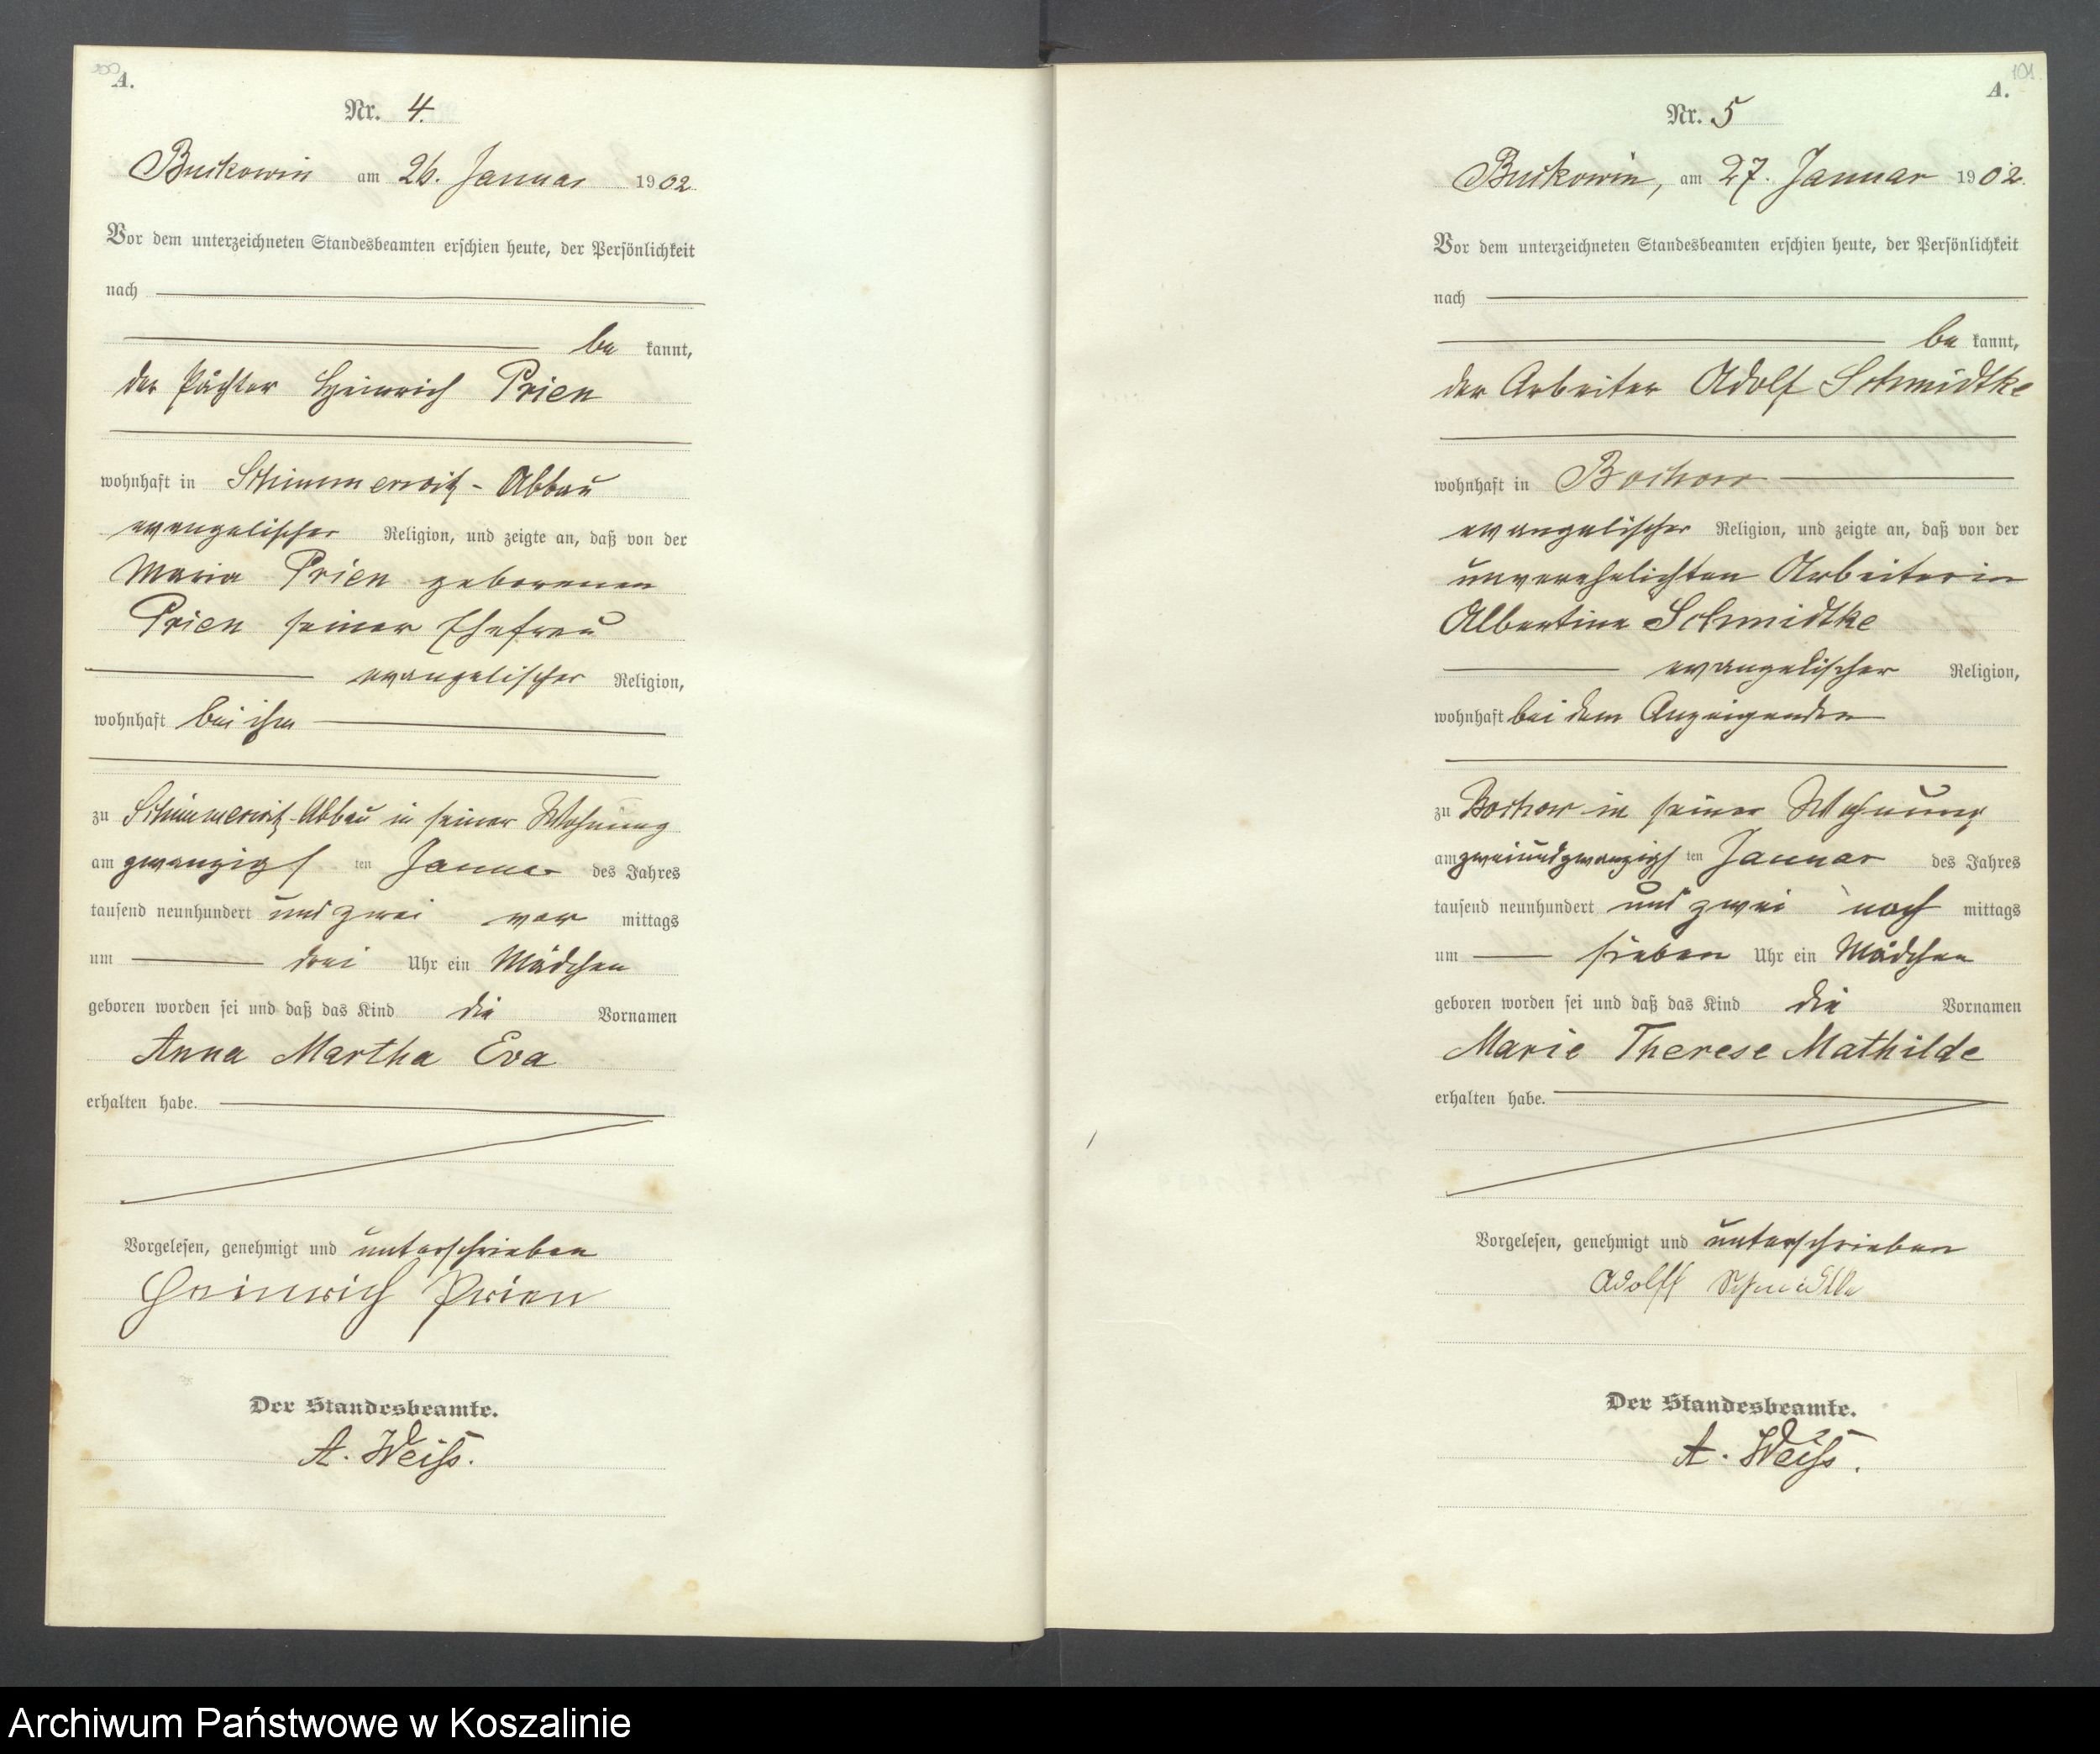 A.
Nr. 4.
Buckowin am 26. Januar 1902.
Vor dem unterzeichneten Standesbeamten erschien heute, der Persönlichkeit
nach
be kannt,
der Pächter Heinrich Prien
wohnhaft in Schimmerwitz - Abbau
evangelischer Religion, und zeigte an, daß von der
Maria Prien geborenen
Prien seiner Ehefrau
evangelischer Religion,
wohnhaft bei ihm
zu Schimmerwitz-Abbau in seiner Wohnung
am zwanzigs ten Januar des Jahres
tausend neunhundert und zwei vor mittags
um drei Uhr ein Mädchen
geboren worden sei und daß das Kind die Vornamen
Anna Martha Eva
erhalten habe.
Vorgelesen, genehmigt und unterschrieben
Heinrich Prien
Der Standesbeamte.
A. Weiß.
101.
A.
Nr. 5
Buckowin, am 27. Januar 1902.
Vor dem unterzeichneten Standesbeamten erschien heute, der Persönlichkeit
nach
be kannt,
der Arbeiter Adolf Schmidtke
wohnhaft in Bochow
evangelischer Religion, und zeigte an, daß von der
unverehelichten Arbeiterin
Albertine Schmidtke
evangelischer Religion,
wohnhaft bei dem Anzeigenden
zu Bochow in seiner Wohnung
am zweiundzwanzigs ten Januar des Jahres
tausend neunhundert und zwei nach mittags
um sieben Uhr ein Mädchen
geboren worden sei und daß das Kind die Vornamen
Marie Therese Mathilde
erhalten habe.
Vorgelesen, genehmigt und unterschrieben
Adolff Schmidtke
Der Standesbeamte.
A. Weiß.
Archiwum Państwowe w Koszalinie